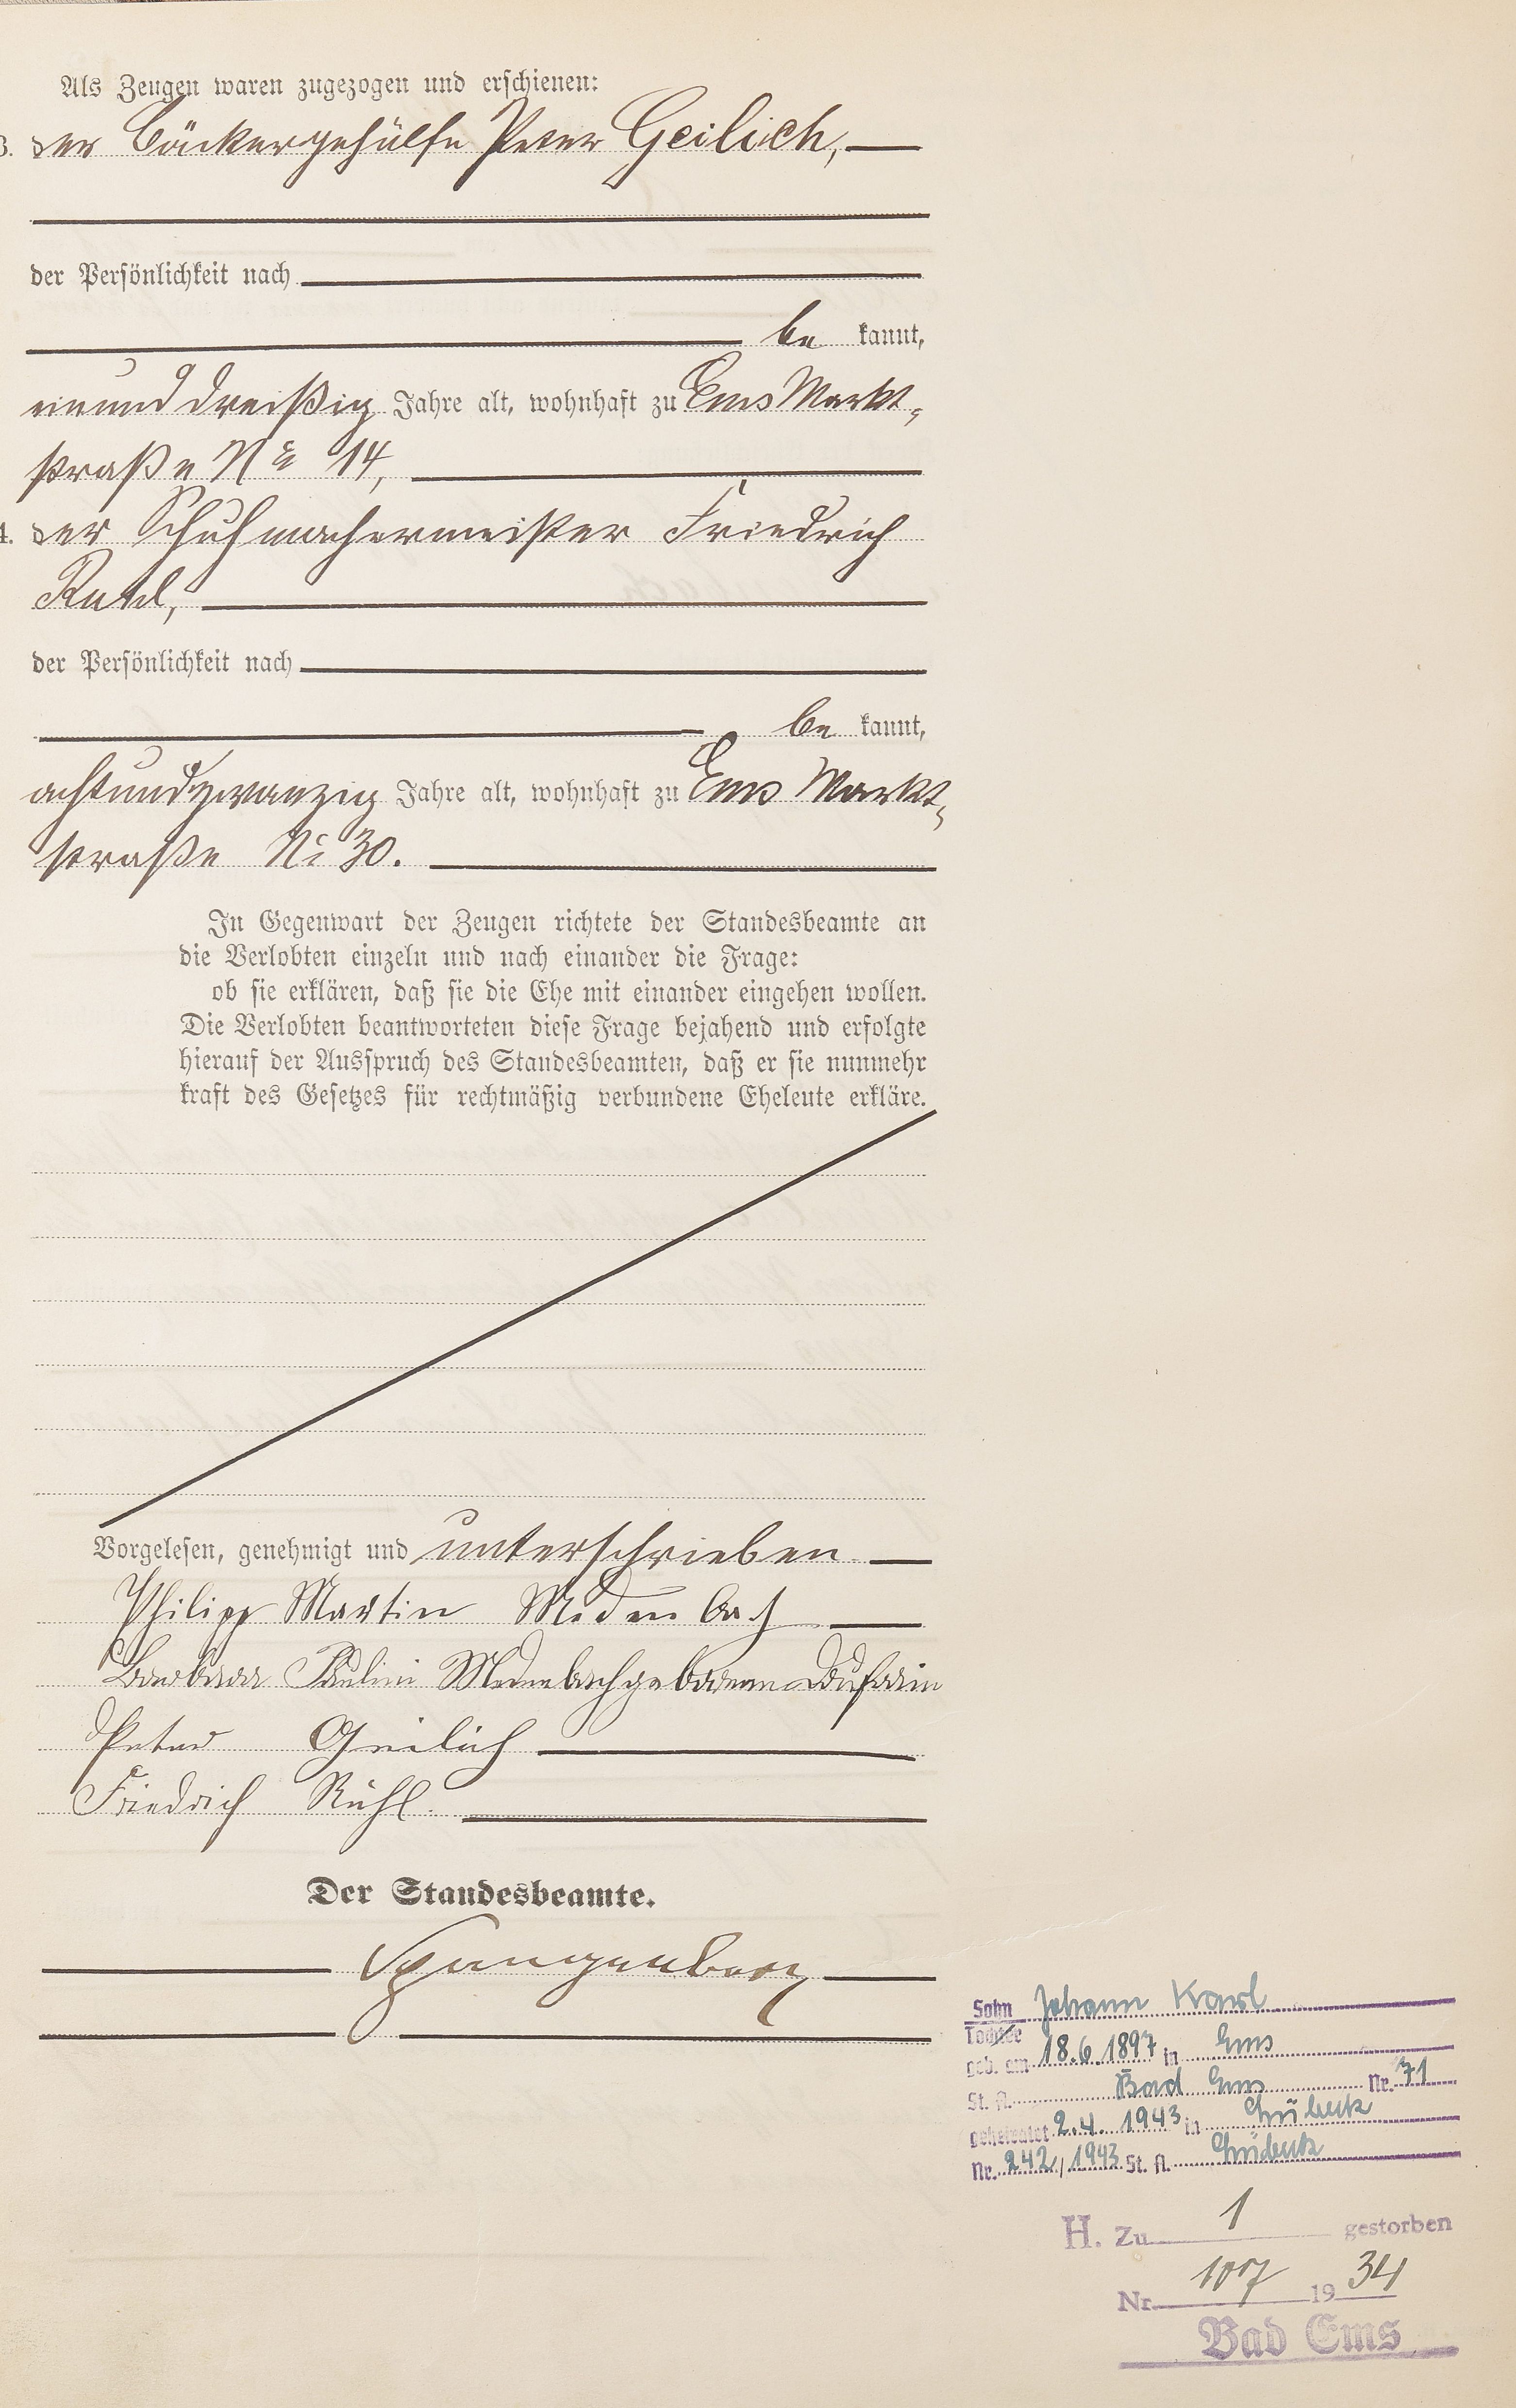 Als Zeugen waren zugezogen und erschienen:
3. der Bäckergehülfe Peter Geilich,
der Persönlichkeit nach
be kannt,
einunddreißig Jahre alt, wohnhaft zu Ems Markt-
straße No 14,
4. der Schuhmachermeister Friedrich
der Persönlichkeit nach
be kannt,
achtundzwanzig Jahre alt, wohnhaft zu Ems Markt-
straße No 30.
In Gegenwart der Zeugen richtete der Standesbeamte an
die Verlobten einzeln und nach einander die Frage:
ob sie erklären, daß sie die Ehe mit einander eingehen wollen.
Die Verlobten beantworteten diese Frage bejahend und erfolgte
hierauf der Ausspruch des Standesbeamten, daß er sie nunmehr
kraft des Gesetzes für rechtmäßig verbundene Eheleute erkläre.
Vorgelesen, genehmigt und unterschrieben
Philipp Martin Medenbach
Barbara Paulini Medenbach geborene
Peter Geilich
Friedrich Rühl.
Der Standesbeamte.
Spangenberg
Sohn Johann Karl
Tochter
geb. am 18.6.1897 in Ems
St. A. Bad Ems Nr. 71
geheiratet 2.4. 1943 in Lübeck
Nr. 242/1943 St. A. Lübeck
H. Zu 1 gestorben
Nr. 107 1934
Bad Ems